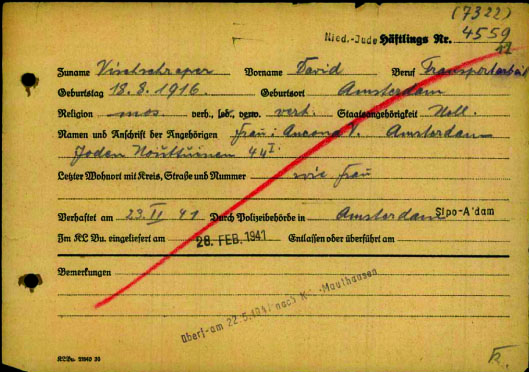 (7322)
Nied.-Jude Häftlings Nr. 4559
12
Zuname Vischschraper Vorname David Beruf Transportarbeit
Geburtstag 18.8.1916. Geburtsort Amsterdam
Religion mos. verh., led., verw. verh. Staatsangehörigkeit Holl.
Namen und Anschrift der Angehörigen Frau: Ancona V. Amsterdam
Joden Houttuinen 44 I.
Letzter Wohnort mit Kreis, Straße und Nummer wie Frau
Verhaftet am 23.II 41 Durch Polizeibehörde in Amsterdam Sipo-A'dam
Im KL Bu. eingeliefert am 28. FEB. 1941 Entlassen oder überführt am
Bemerkungen
überf. am 22.5.1941 nach K.L.-Mauthausen
KLBu.